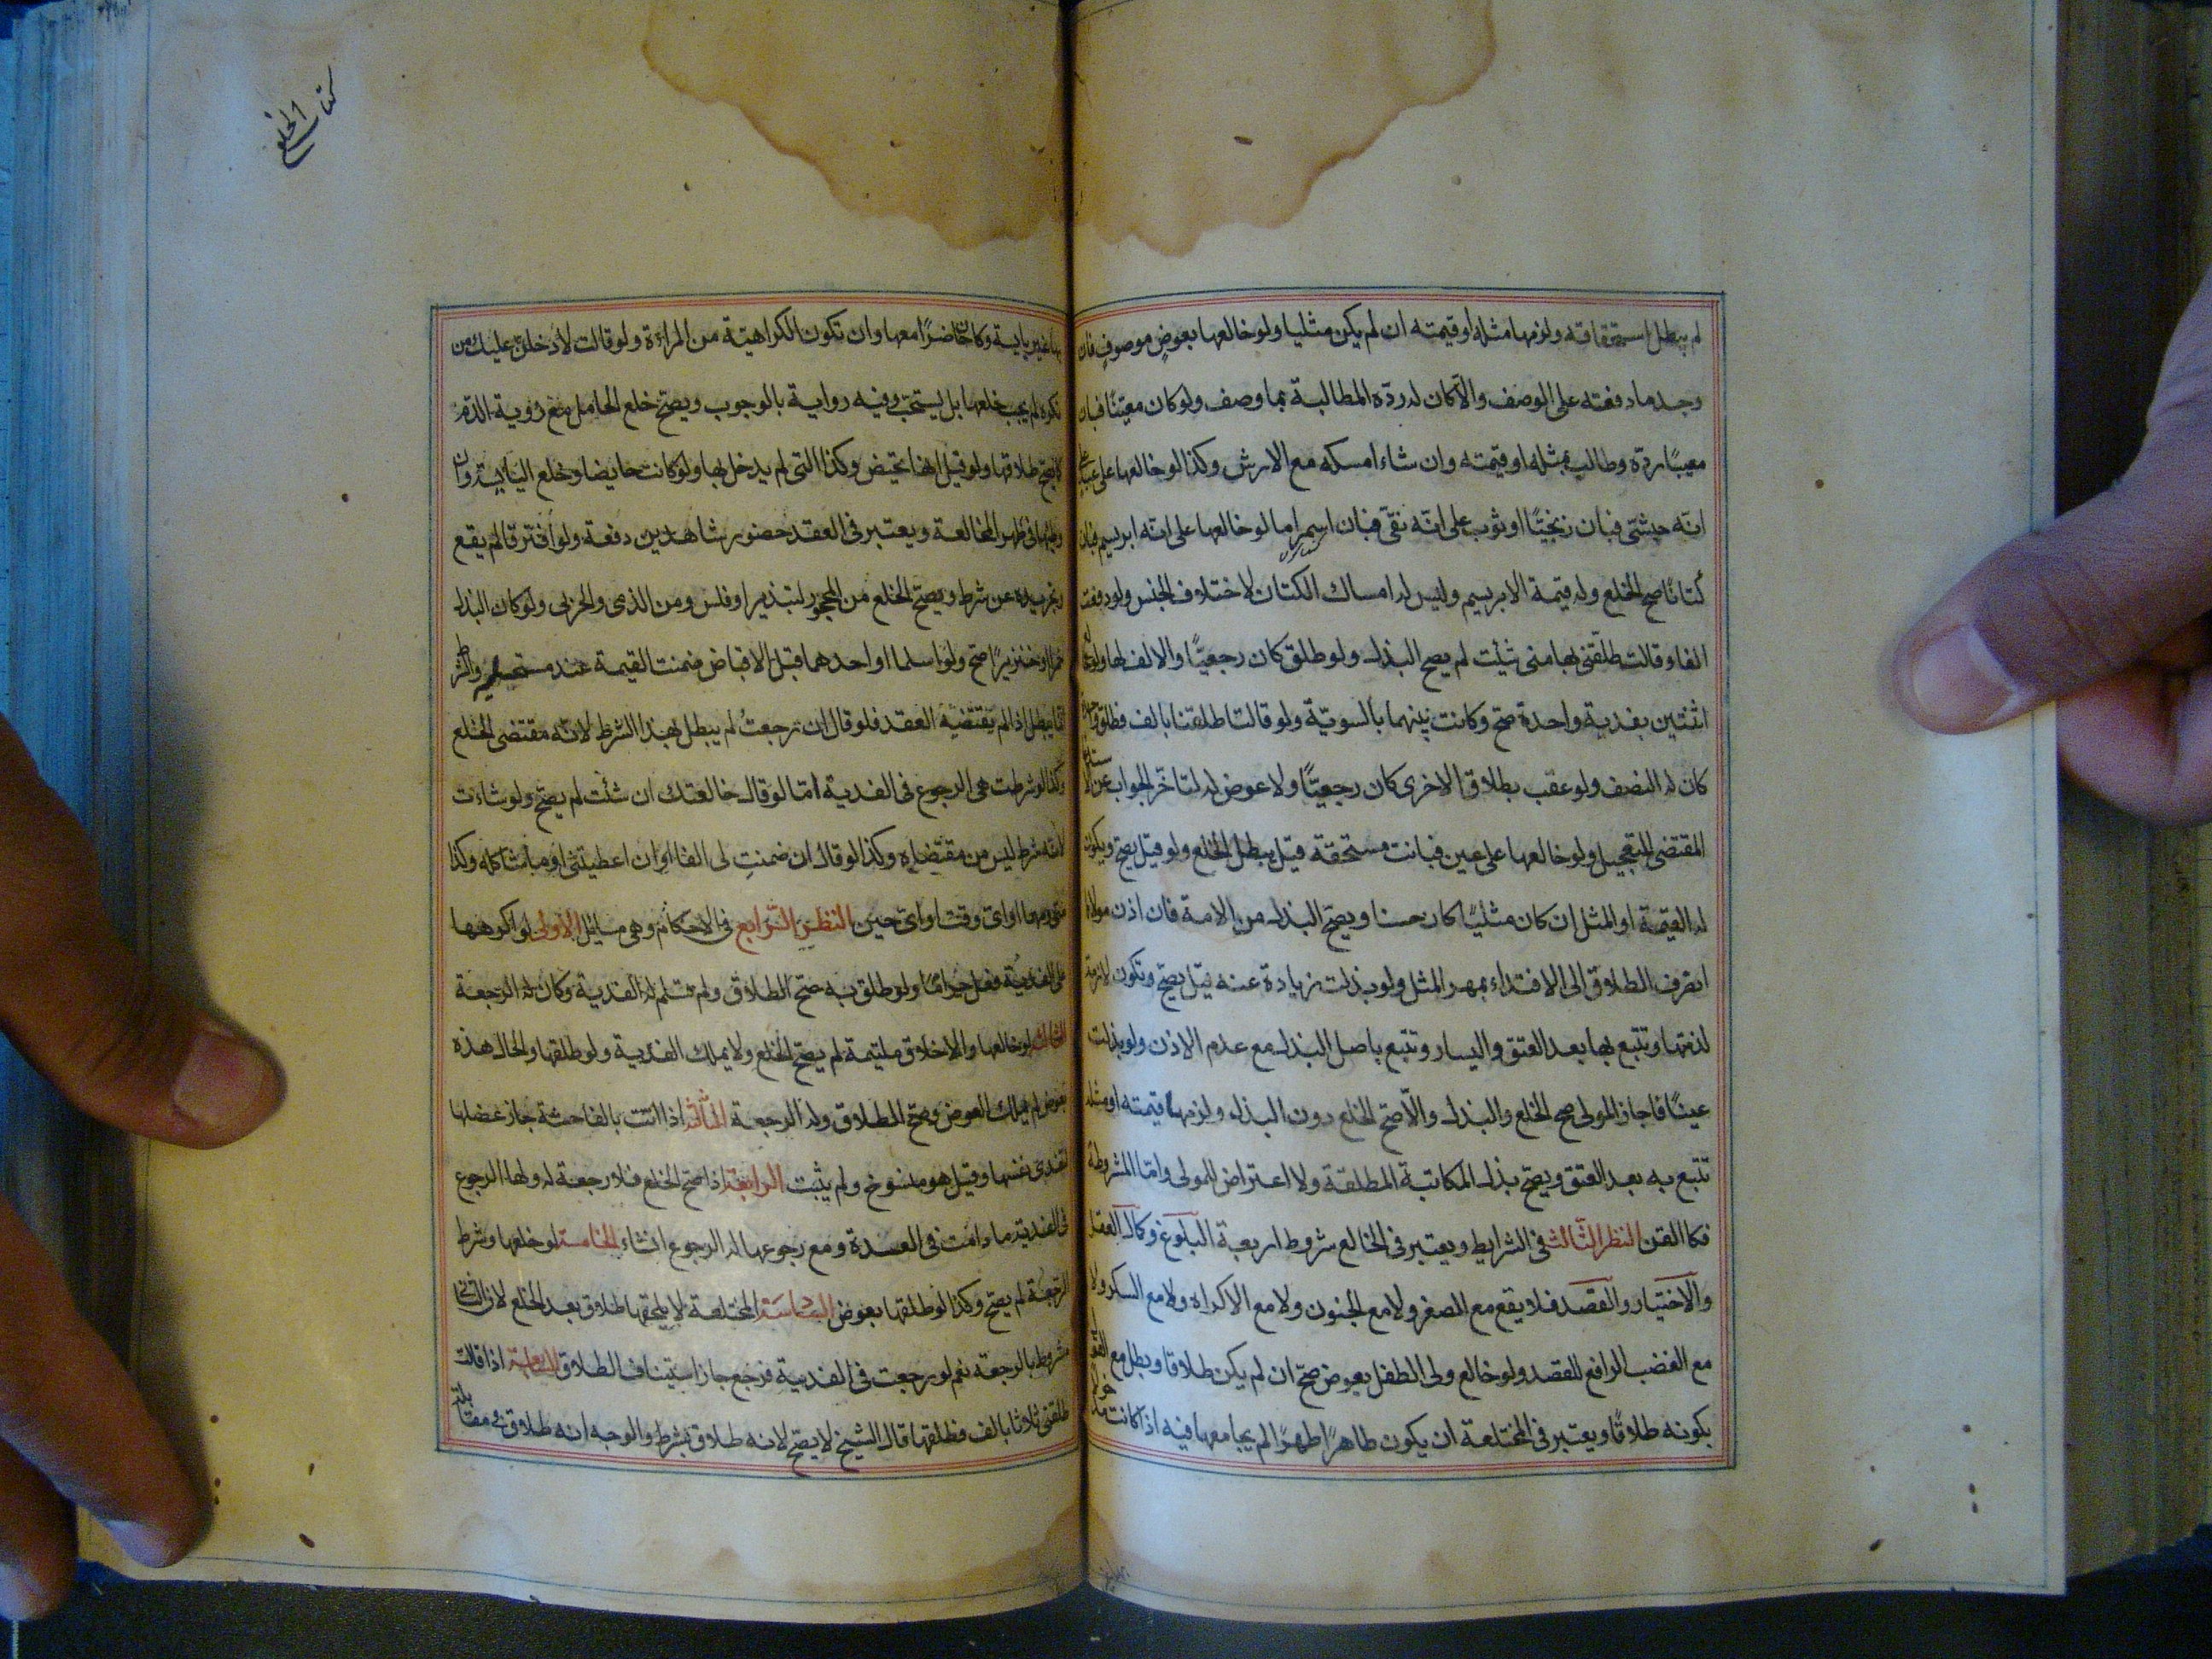 لم يبطل استحقاقه ولزمها مثله او قيمته ان لم يكن مثليا ولو خالعها بعوض موصوف فان
وجد ما دفعته على الوصف والا كان له ردّه المطالبة بما وصف ولو كان معيّنًا فبان
معيبًا ردّه وطالب بمثله او قيمته وان شاء امسكه مع الارش وكذا لو خالعها على عبد على
انّه حبشيّ فبان زنجيًّا او ثوب على انّه نقيّ فبان اسمر اما لو خالعها على انّه ابريسم فبان
كتانًا صح الخلع وله قيمة الابريسم وليس له امساك الكتان لاختلاف الجنس ولو دفعت
الفا وقالت طلّقني بها متى شئت لم يصح البذل ولو طلق كان رجعيًّا والالف لها ولو خالع
اثنتين بفدية واحدة صحّ وكانت بينهما بالسويّة ولو قالتا طلقنا بالف فطلق واحدة
كان له النصف ولو عقب بطلاق الاخرى كان رجعيًّا ولا عوض له لتاخّر الجواب عن الاستدعاء
المقتضى للتعجيل ولو خالعها على عين فبانت مستحقة قيل يبطل الخلع ولو قيل يصحّ ويكون
له القيمة او المثل ان كان مثليًّا كان حسنا ويصحّ البذل من الامة فان اذن مولاها
انصرف الطلاق الى الافتداء بمهر المثل ولو بذلت زيادة عنه قيل يصحّ وتكون لازمة
لذمتها وتتبع بها بعد العتق واليسار وتتبع باصل البذل مع عدم الاذن ولو بذلت
عينًا فاجاز المولى صح الخلع والبذل والاّ صحّ الخلع دون البذل ولزمها قيمته او مثله
تتبع به بعد العتق ويصحّ بذل المكاتبة المطلقة ولا اعتراض للمولى وامّا المشروطة
فكا القن النظر الثّالث في الشرايط ويعتبر في الخالع شروط اربعة البلوغ وكمال العقل
والاختيار والقصد فلا يقع مع الصغر ولا مع الجنون ولا مع الاكراه ولا مع السكر ولا
مع الغضب الرافع للقصد ولو خالع ولى الطفل بعوض صحّ ان لم يكن طلاقا وبطل مع القول
بكونه طلاقًا ويعتبر في المختلعة ان يكون طاهرًا طهرًا لم يجامعها فيه اذا كانت مدخول
كتاب الخلع
بها غير يايسة وكان حاضرًا معها وان تكون الكراهيّة من المراءة ولو قالت لادخلن عليك من
تكره لم يجب خلعها بل يستحبّ وفيه رواية بالوجوب ويصحّ خلع الحامل مع رؤية الدّم
كما يصحّ طلاقها ولو قيل انها تحيض وكذا التى لم يدخل بها ولو كانت حايضا وخلع اليايسة وان
وطئها في طهر المخالعة ويعتبر في العقد حضور شاهدين دفعة ولو افترقا لم يقع
وتجريده عن شرط ويصحّ الخلع من المحجور لتبذير او فلس ومن الذمى والحربى ولو كان البذل
خمرا او خنزيرًا صح ولو اسلما او احدهما قبل الاقباض ضمنت القيمة عند مستحليه والشرط
انما يبطل اذا لم يقتضيه العقد فلو قال ان رجعتُ لم يبطل بهذا الشرط لانّه مقتضى الخلع
وكذا لو شرطت هى الرجوع في الفدية امّا لو قال خالعتك ان شئت لم يصحّ ولو شاءت
لانّه شرط ليس من مقتضاه وكذا لو قال ان ضمنتِ لى الفا او ان اعطيتنى او ما شاكله وكذا
متى او مهما او اىّ وقت او اىّ حين النظر الرّابع في الاحكام وهى مسائل الاولى لو اكرهها
على الفدية فعل حرامًا ولو طلق به صحّ الطلاق ولم تسلم له الفدية وكان له الرجعة
الثانية لو خالعها والاخلاق ملتيمة لم يصحّ الخلع ولا يملك الفدية ولو طلقها والحال هذه
بعوض لم يملك العوض وصحّ الطلاق وله الرجعة الثالثة اذا اتت بالفاحشة جاز عضلها
لتفدى نفسها وقيل هو منسوخ ولم يثبت الرابعة اذا صحّ الخلع فلا رجعة له ولها الرجوع
في الفدية ما دامت في العدة ومع رجوعها له الرجوع ان شاء الخامسة لو خلعها وشرط
الرّجعة لم يصحّ وكذا لو طلقها بعوض السادسة المختلعة لا يلحقها طلاق بعد الخلع لان الثانى
مشروط بالرجعة نعم لو رجعت في الفدية فرجع جاز استيناف الطلاق السابعة اذا قالت
طلقنى ثلاثا بالف فطلقها قال الشيخ لا يصحّ لانه طلاق بشرط والوجه انه طلاق في مقابلة